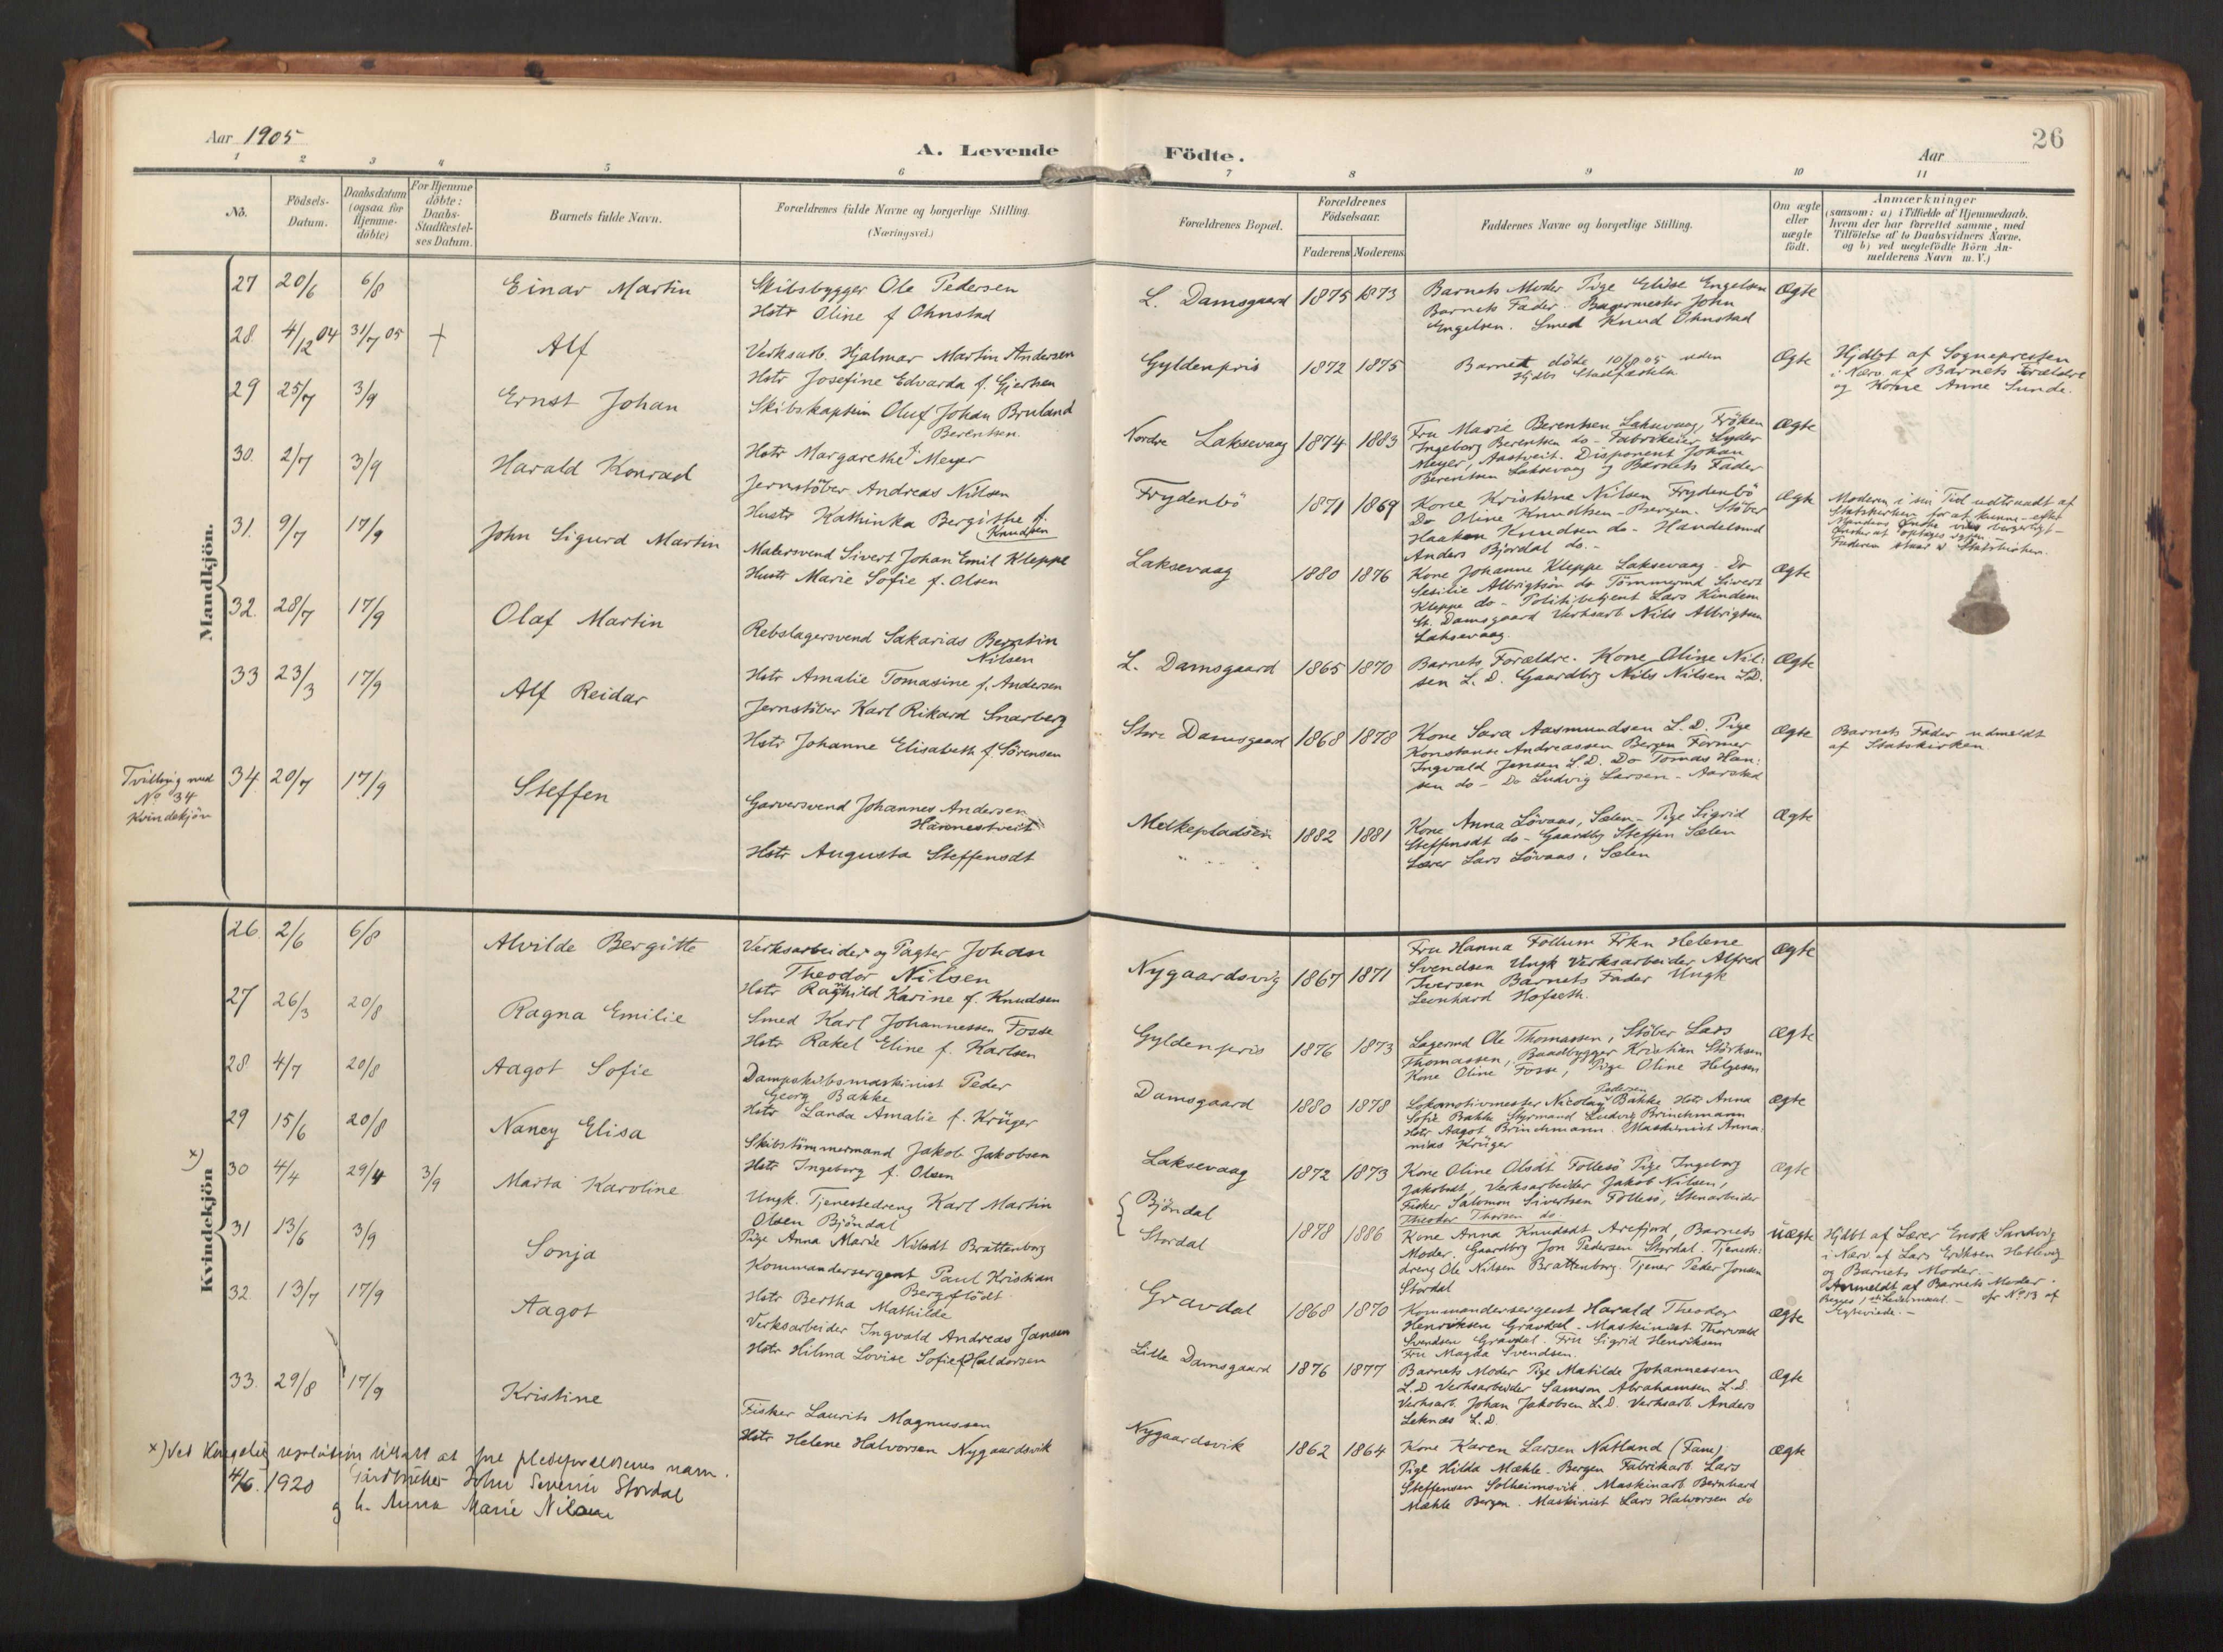 Aar 1905
A. Levende Födte.
26
Aar
1 2 3 4 5 6 7 8 9 10 11
No.
Födsels-Datum.
Daabsdatum (ogsaa for Hjemme-döbte)
For Hjemme döbte: Daabs-Stadfæstel-ses Datum.
Barnets fulde Navn.
Forældrenes fulde Navne og borgerlige Stilling. (Næringsvei.)
Forældrenes Bopæl.
Forældrenes Födselsaar.
Faderens Moderens
Faddernes Navne og borgerlige Stilling.
Om ægte eller uægte födt.
Anmærkninger (saasom: a) i Tilfælde af Hjemmedaab, hvem der har forrettet samme, med Tilföielse af to Daabsvidners Navne, og b) ved uegtefödte Börn An-melderens Navn m.V.)
Mandkjön.
27 20/6 6/8 Einar Martin
Skibsbygger Ole Pedersen
Hstr Oline f Ohnstad
L. Damsgaard 1875 1873
Barnets Moder Pige Elise Engelsen
Barnets Fader. Bagermester John
Engelsen. Smed Knud Ohnstad
Ægte
28. 4/12 04 31/7 05 + Alf
Verksarb. Hjalmar Martin Andersen
Hstr Josefine Edvarda f. Gjertsen
Gyldenpris 1872 1875
Barnet döde 10/8 05 uden
Hjdbs Stadfæstelse
Ægte
Hjdbt af Sognepresten
i Nærv. af Barnets Forældre
og Kone Anne Sunde.
29 25/7 3/9 Ernst Johan
Skibskaptein Oluf Johan Bruland
Berentsen.
Hstr Margarethe f. Meyer
Nordre Laksevaag 1874 1883
Fru Marie Berentsen Laksevaag, Fröken
Ingeborg Berentsen do - Fabrikeier Lyder
Meyer, Aastveit. Disponent Johan
Berentsen Laksevaag og Barnets Fader
Ægte
30. 2/7 3/9 Harald Konrad
Jernstöber Andreas Nilsen
Hustr Kathinka Bergitte f.
Knudsen
Frydenbö 1871 1869
Kone Kristine Nilsen Frydenbö
Do Oline Knudtsen - Bergen. Stöber
Haaken Knudsen do - Handelsmd
Anders Bjordal do. -
Ægte
Moderen i sin Tid udtraadt af
Statskirken for at kunne - efter
Mandens Ønske vies borgerligt -
ønsker at optages igjen -
Faderen staar u. Statskirken.
31. 9/7 17/9 John Sigurd Martin
Malersvend Sivert Johan Emil Kleppe
Hustr Marie Sofie f. Olsen
Laksevaag 1880 1876
Kone Johanne Kleppe Laksevaag. Do
Sesilie Albrigtsön do Tömmermd Sivert
Kleppe do - Politibetjent Lars Kindem
St. Damsgaard Verksarb Nils Albrigtsen
Laksevaag.
Ægte
32. 28/7 17/9 Olaf Martin
Rebslagersvend Sakarias Berntin
Nilsen
Hstr Amalie Tomasine f. Andersen
L. Damsgaard 1865 1870
Barnets Forældre. Kone Oline Nil:
sen L. D. Gaardbrg Nils Nilsen L.D.
Ægte
33 23/3 17/9 Alf Reidar
Jernstöber Karl Rikard Snarberg
Hstr Johanne Elisabeth f. Sörensen
Store Damsgaard 1868 1878
Kone Sara Aasmundsen L.D. Pige
Konstanse Andreassen Bergen Former
Ingvald Jensen L.D. Do Tomas Han:
sen do - Do Ludvig Larsen - Aarstad
Ægte
Barnets Fader udmeldt
af Statskirken.
Tvilling med
No 34
Kvindekjön
34. 20/7 17/9 Steffen
Garversvend Johannes Andersen
Hannestveit
Hstr Augusta Steffensdt
Melkepladsen 1882 1881
Kone Anna Lövaas, Sælen - Pige Sigrid
Steffensdt do - Gaardbg Steffen Sælen
Lærer Lars Lövaas, Sælen
Ægte
Kvindekjön
26. 2/6 6/8 Alvilde Bergitte
Verksarbeider og Pagter Johan
Theodor Nilsen
Hstr Raghild Karine f. Knudsen
Nygaardsvig 1867 1871
Fru Hanna Follum Frkn Helene
Svendsen Ungk Verksarbeider Alfred
Iversen Barnets Fader Ungk
Leonhard Hofseth.
Ægte
27 26/3 20/8 Ragna Emilie
Smed Karl Johannessen Fosse
Hstr Rakel Eline f. Karlsen
Gyldenpris 1876 1873
Lagermd Ole Thomassen, Stöber Lars
Thomassen, Baadbygger Kristian Störksen
Kone Oline Fosse, Pige Oline Helgesen
Ægte
28. 4/7 20/8 Aagot Sofie
Dampskibsmaskinist Peder
Georg Bakke
Hstr Landa Amalie f. Krüger
Damsgaard 1880 1878
Lokomotivmester Nicolay Pedersen Bakke Hstr Anna
Sofie Bakke Styrmand Ludvig Brinchmann
Hstr Aagot Brinchmann. Maskinist Anna:
nias Krüger
Ægte
29 15/6 20/8 Nancy Elisa
Skibstömmermand Jakob Jakobsen
Hstr Ingeborg f. Olsen
Laksevaag 1872 1873
Kone Oline Olsdt Follesö Pige Ingeborg
Jakobsdt, Verksarbeider Jakob Nilsen,
Fisker Salomon Sivertsen Follesö, Stenarbeider
Theodor Thorsen do.
Ægte
x)
30 4/4 29/4 3/9 Marta Karoline
Ungk. Tjenestedreng Karl Martin
Olsen Bjöndal
Pige Anna Marie Nilsdt Brattenborg
Bjöndal
Stordal
1878 1886
Kone Anna Knudsdt Arefjord, Barnets
Moder. Gaardbrg Jon Pedersen Stordal. Tjeneste:
dreng Ole Nilsen Brattenborg. Tjener Peder Jonsen
Stordal
Uægte
Hjdbt af Lærer Enok Sandvig
i Nærv af Lars Eriksen Hetlevig
og Barnets Moder. -
Anmeldt af Barnets Moder.
31 13/6 3/9 Sonja
Kommandersergent Paul Kristian
Bergflödt
Hstr Bertha Mathilde
Gravdal 1868 1870
Kommandersergent Harald Theodor
Henriksen Gravdal - Maskinist Thorvald
Svendsen Gravdal. Fru Sigrid Henriksen
Fru Magda Svendsen.
Ægte
32. 13/7 17/9 Aagot
Verksarbeider Ingvald Andreas Jansen
Hstr Hilma Lovise Sofie f Haldorsen
Lille Damsgaard 1876 1877
Barnets Moder Pige Matilde Johannessen
L.D. Verksarbeider Samson Abrahamsen L.D.
Verksarb. Johan Jakobsen L.D. Verksarb. Anders
Leknæs L.D.
Ægte
33. 29/8 17/9 Kristine
Fisker Laurits Magnussen
Hstr Helene Halvorsen Nygaardsvik
Nygaardsvik 1862 1864
Kone Karen Larsen Natland (Fane)
Pige Hilda Mæhle. Bergen Fabrikarb Lars
Steffensen Solheimsvik. Maskinarb Bernhard
Mæhle Bergen. Maskinist Lars Halvorsen do
Ægte
x) Ved Kongelig resolution tillatt at före pleieforeldrenes navn.
4/6. 1920 Gårdbruker John Severin Stordal
g h. Anna Marie Nilsen